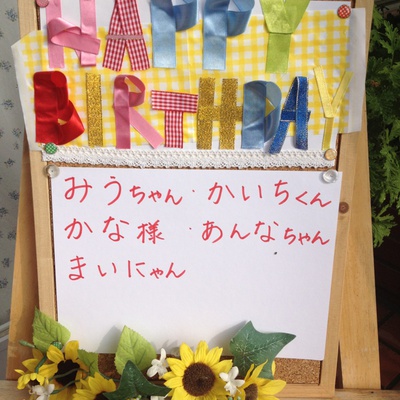 HAPPY
BIRTHDAY
みうちゃん・かいちくん
かな様・あんなちゃん
まいにゃん